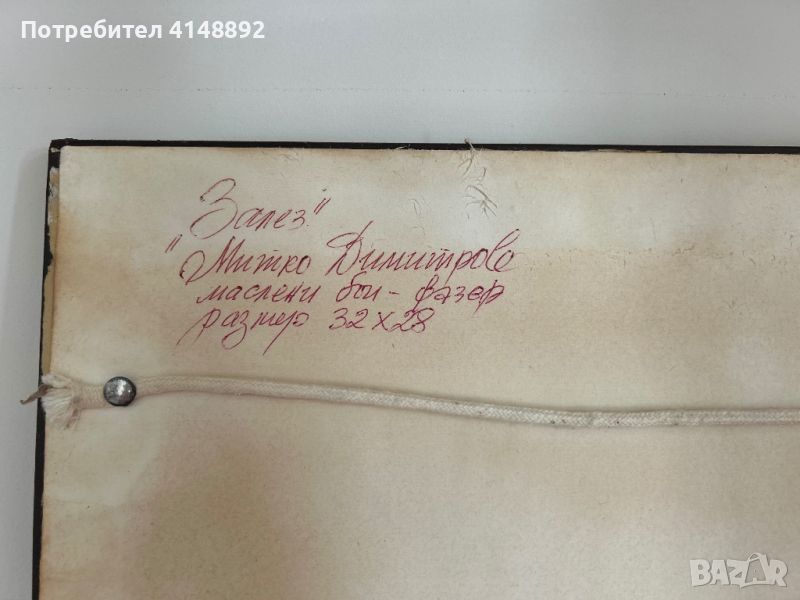 Потребител 4148892
Залез"
"Митко Димитров
маслени бои - фазер
размер 32 х 28
BAZAR